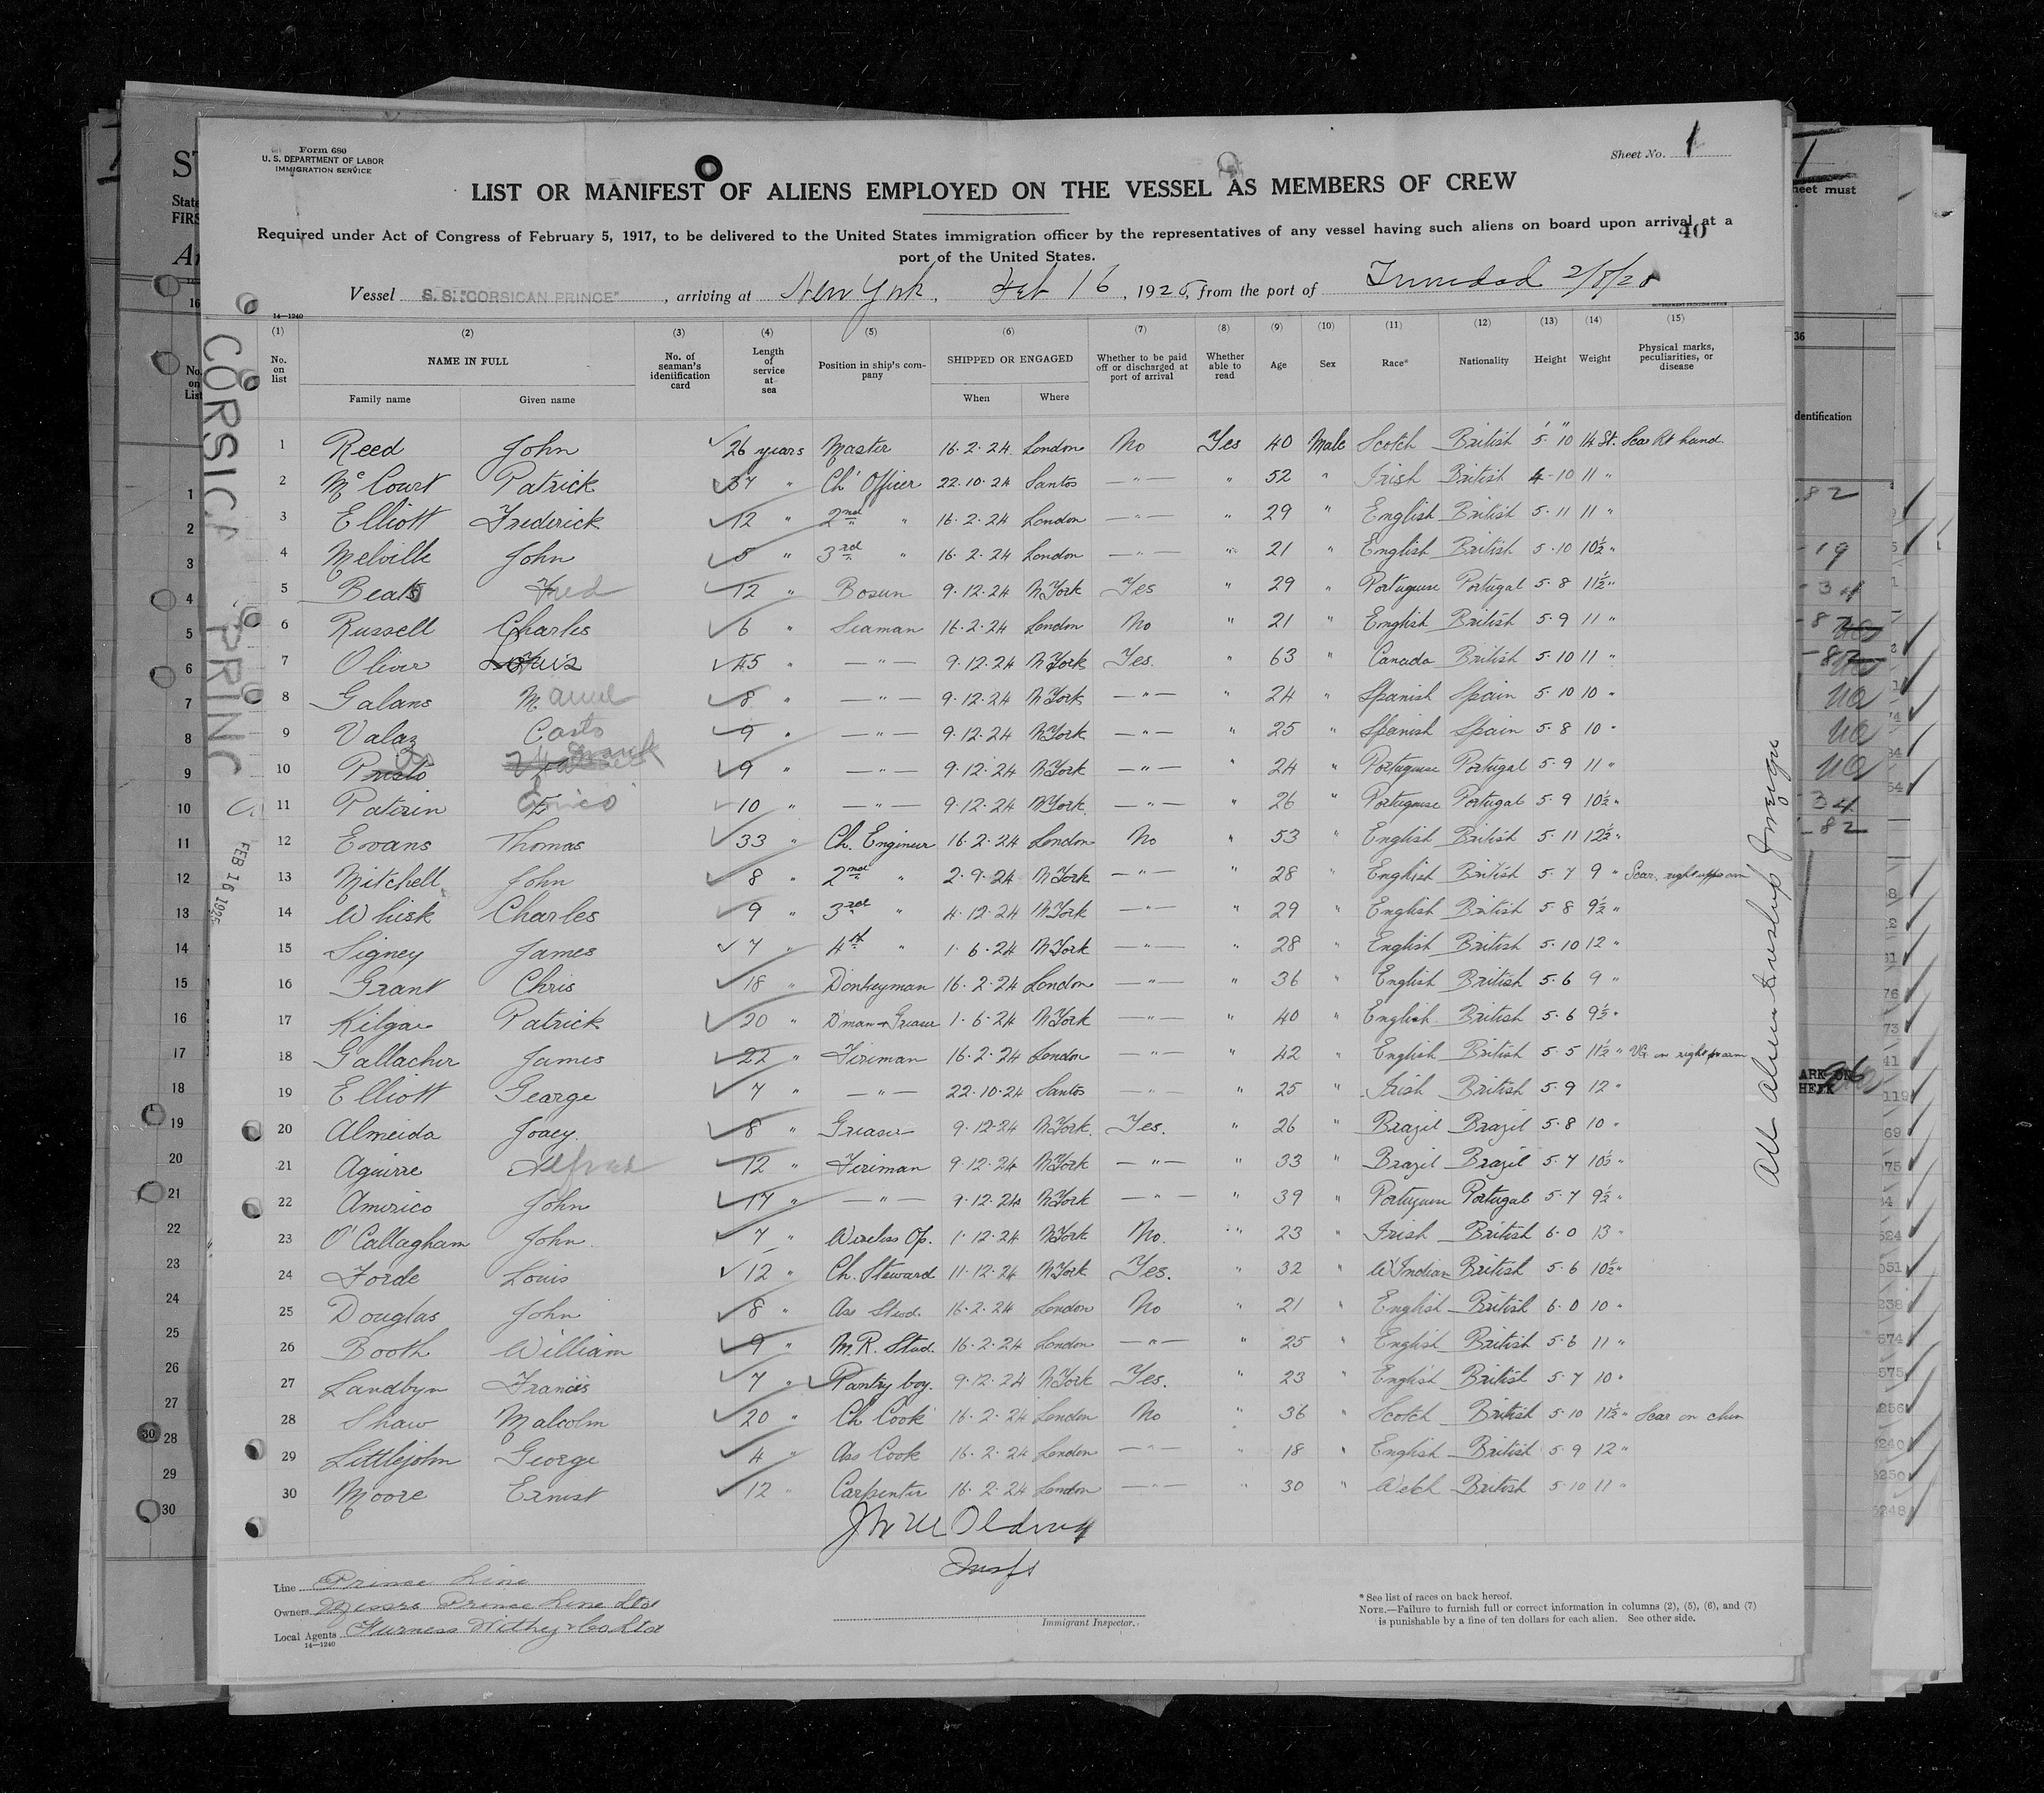 Form 680
U. S. DEPARTMENT OF LABOR
IMMIGRATION SERVICE
Sheet No. 1
LIST OR MANIFEST OF ALIENS EMPLOYED ON THE VESSEL AS MEMBERS OF CREW
Required under Act of Congress of February 5, 1917, to be delivered to the United States immigration officer by the representatives of any vessel having such aliens on board upon arrival at a
port of the United States.
40
Vessel S. S. "CORSICAN PRINCE", arriving at New York, Feb 16, 1925, from the port of Trinidad
14—1240
(1) (2) (3) (4) (5) (6) (7) (8) (9) (10) (11) (12) (13) (14) (15)
No. on list NAME IN FULL Family name Given name No. of seaman's identification card Length of service at sea Position in ship's company SHIPPED OR ENGAGED When Where Whether to be paid off or discharged at port of arrival Whether able to read Age Sex Race* Nationality Height Weight Physical marks, peculiarities, or disease
1 Reed John 26 years Master 16.2.24 London No Yes 40 Male Scotch British 5' 10" 14 St. Scar Rt hand.
2 McCourt Patrick 37 " Ch Officer 22.10.24 Santos — " — " 52 " Irish British 4-10 11 "
3 Elliott Frederick 12 " 2nd " 16.2.24 London — " — " 29 " English British 5.11 11 "
4 Melville John 5 " 3rd " 16.2.24 London — " — " 21 " English British 5.10 10½ "
5 Beals Fred 12 " Bosun 9.12.24 N York Yes " 29 " Portuguese Portugal 5.8 11½ "
6 Russell Charles 6 " Seaman 16.2.24 London No " 21 " English British 5.9 11 "
7 Oliver Louis 45 " — " — 9.12.24 N York Yes. " 63 " Canada British 5.10 11 "
8 Galans M. 8 " — " — 9.12.24 N York — " — " 24 " Spanish Spain 5.10 10 "
9 Valaz Casto 9 " — " — 9.12.24 N York — " — " 25 " Spanish Spain 5.8 10 "
10 Frank 9 " — " — 9.12.24 N York — " — " 24 " Portuguese Portugal 5.9 11 "
11 Paterin 10 " — " — 9.12.24 N York — " — " 26 " Portuguese Portugal 5.9 10½ "
12 Evans Thomas 33 " Ch. Engineer 16.2.24 London No " 53 " English British 5.11 12½ "
13 Mitchell John 8 " 2nd " 2.9.24 N York — " — " 28 " English British 5.7 9 " Scar, right upp arm
14 Whisk Charles 9 " 3rd " 4.12.24 N York — " — " 29 " English British 5.8 9½ "
15 Signey James 7 " 4th " 1.6.24 N York — " — " 28 " English British 5.10 12 "
16 Grant Chris 18 " Donkeyman 16.2.24 London — " — " 36 " English British 5.6 9 "
17 Kilgar Patrick 20 " D'man & Greaser 1.6.24 N York — " — " 40 " English British 5.6 9½ "
18 Gallacher James 22 " Fireman 16.2.24 London — " — " 42 " English British 5.5 11½ " on right
19 Elliott George 7 " — " — 22.10.24 Santos — " — " 25 " Irish British 5.9 12 "
20 Almeida Joaey 8 " Greaser 9.12.24 N York. Yes. " 26 " Brazil Brazil 5.8 10 "
21 Aguirre Alfred 12 " Fireman 9.12.24 N York — " — " 33 " Brazil Brazil 5.7 10½ "
22 Americo John 17 " — " — 9.12.24 N York — " — " 39 " Portuguese Portugal 5.7 9½ "
23 O'Callagham John 7 " Wireless Op. 1.12.24 N York No. " 23 " Irish British 6.0 13 "
24 Forde Louis 12 " Ch. Steward 11.12.24 N York Yes. " 32 " W Indian British 5.6 10½ "
25 Douglas John 8 " Ass Stwd. 16.2.24 London No " 21 " English British 6.0 10 "
26 Booth William 9 " M.R. Stwd. 16.2.24 London — " — " 25 " English British 5.6 11 "
27 Landbyn Francis 7 " Pantry boy. 9.12.24 N York Yes. " 23 " English British 5.7 10 "
28 Shaw Malcolm 20 " Ch Cook 16.2.24 London No " 36 " Scotch British 5.10 11½ " Scar on chin
29 Littlejohn George 4 " Ass Cook 16.2.24 London — " — " 18 " English British 5.9 12 "
30 Moore Ernest 12 " Carpenter 16.2.24 London — " — " 30 " Welch British 5.10 11 "
Line Prince Line
Owners Messrs Prince Line Ltd
Local Agents Furness Withy & Co Ltd
14—1240
Immigrant Inspector.
* See list of races on back hereof.
NOTE.—Failure to furnish full or correct information in columns (2), (5), (6), and (7)
is punishable by a fine of ten dollars for each alien. See other side.
CORSICAN PRINC
FEB 16 1925